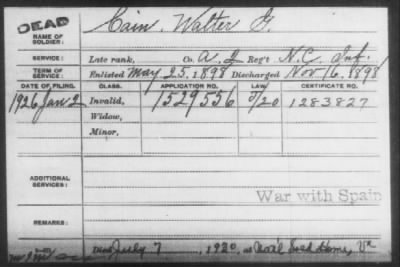 DEAD
NAME OF SOLDIER: Cain, Walter G.
SERVICE: Late rank, Co. A. 2 Reg't N.C. Inf.
TERM OF SERVICE: Enlisted May 25, 1898 Discharged Nov 16, 1898
DATE OF FILING. CLASS. APPLICATION NO. LAW CERTIFICATE NO.
1926 Jan 2 Invalid, 1529556 1283827
Widow,
Minor,
ADDITIONAL SERVICES:
War with Spain
REMARKS:
Died July 7, 1930, at Natl Sold Home, Va